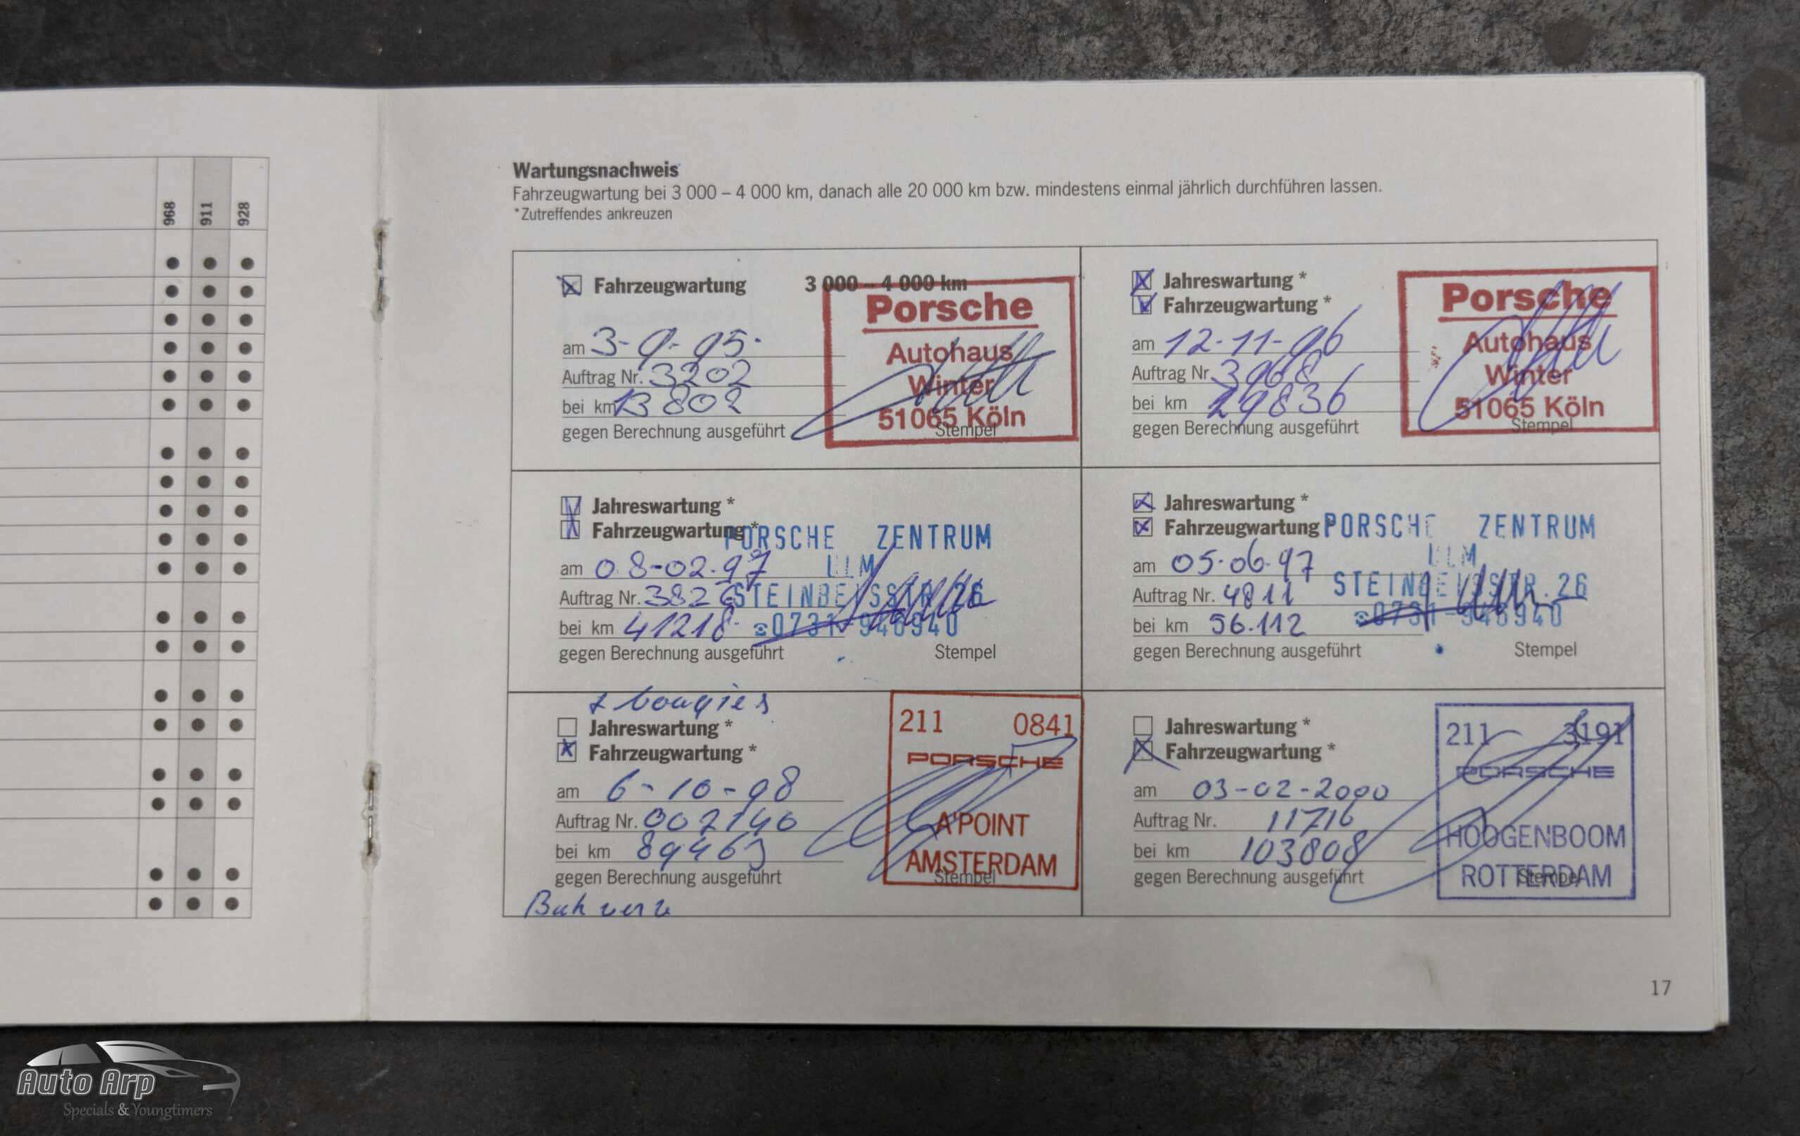 968
911
928
Wartungsnachweis
Fahrzeugwartung bei 3 000 – 4 000 km, danach alle 20 000 km bzw. mindestens einmal jährlich durchführen lassen.
*Zutreffendes ankreuzen
Fahrzeugwartung 3 000 – 4 000 km
am 3-9-95.
Auftrag Nr. 3202
bei km 13802
gegen Berechnung ausgeführt
Stempel
Porsche
Autohaus
Winter
51065 Köln
Jahreswartung *
Fahrzeugwartung *
am 12-11-96
Auftrag Nr. 3968
bei km 29836
gegen Berechnung ausgeführt
Stempel
Porsche
Autohaus
Winter
51065 Köln
Jahreswartung *
Fahrzeugwartung *
am 08-02.97
Auftrag Nr. 3826
bei km 41218
gegen Berechnung ausgeführt
Stempel
PORSCHE ZENTRUM
ULM
STEINBEISSTR. 26
☎0731-946940
Jahreswartung *
Fahrzeugwartung
am 05.06.97
Auftrag Nr. 4811
bei km 56.112
gegen Berechnung ausgeführt
Stempel
PORSCHE ZENTRUM
ULM
STEINBEISSTR. 26
☎0731-946940
+ bougies
Jahreswartung *
Fahrzeugwartung *
am 6-10-98
Auftrag Nr. 002140
bei km 89463
gegen Berechnung ausgeführt
Stempel
211 0841
PORSCHE
A'POINT
AMSTERDAM
Jahreswartung *
Fahrzeugwartung *
am 03-02-2000
Auftrag Nr. 11716
bei km 103808
gegen Berechnung ausgeführt
Stempel
211 3191
PORSCHE
HOOGENBOOM
ROTTERDAM
17
Auto Arp
Specials & Youngtimers